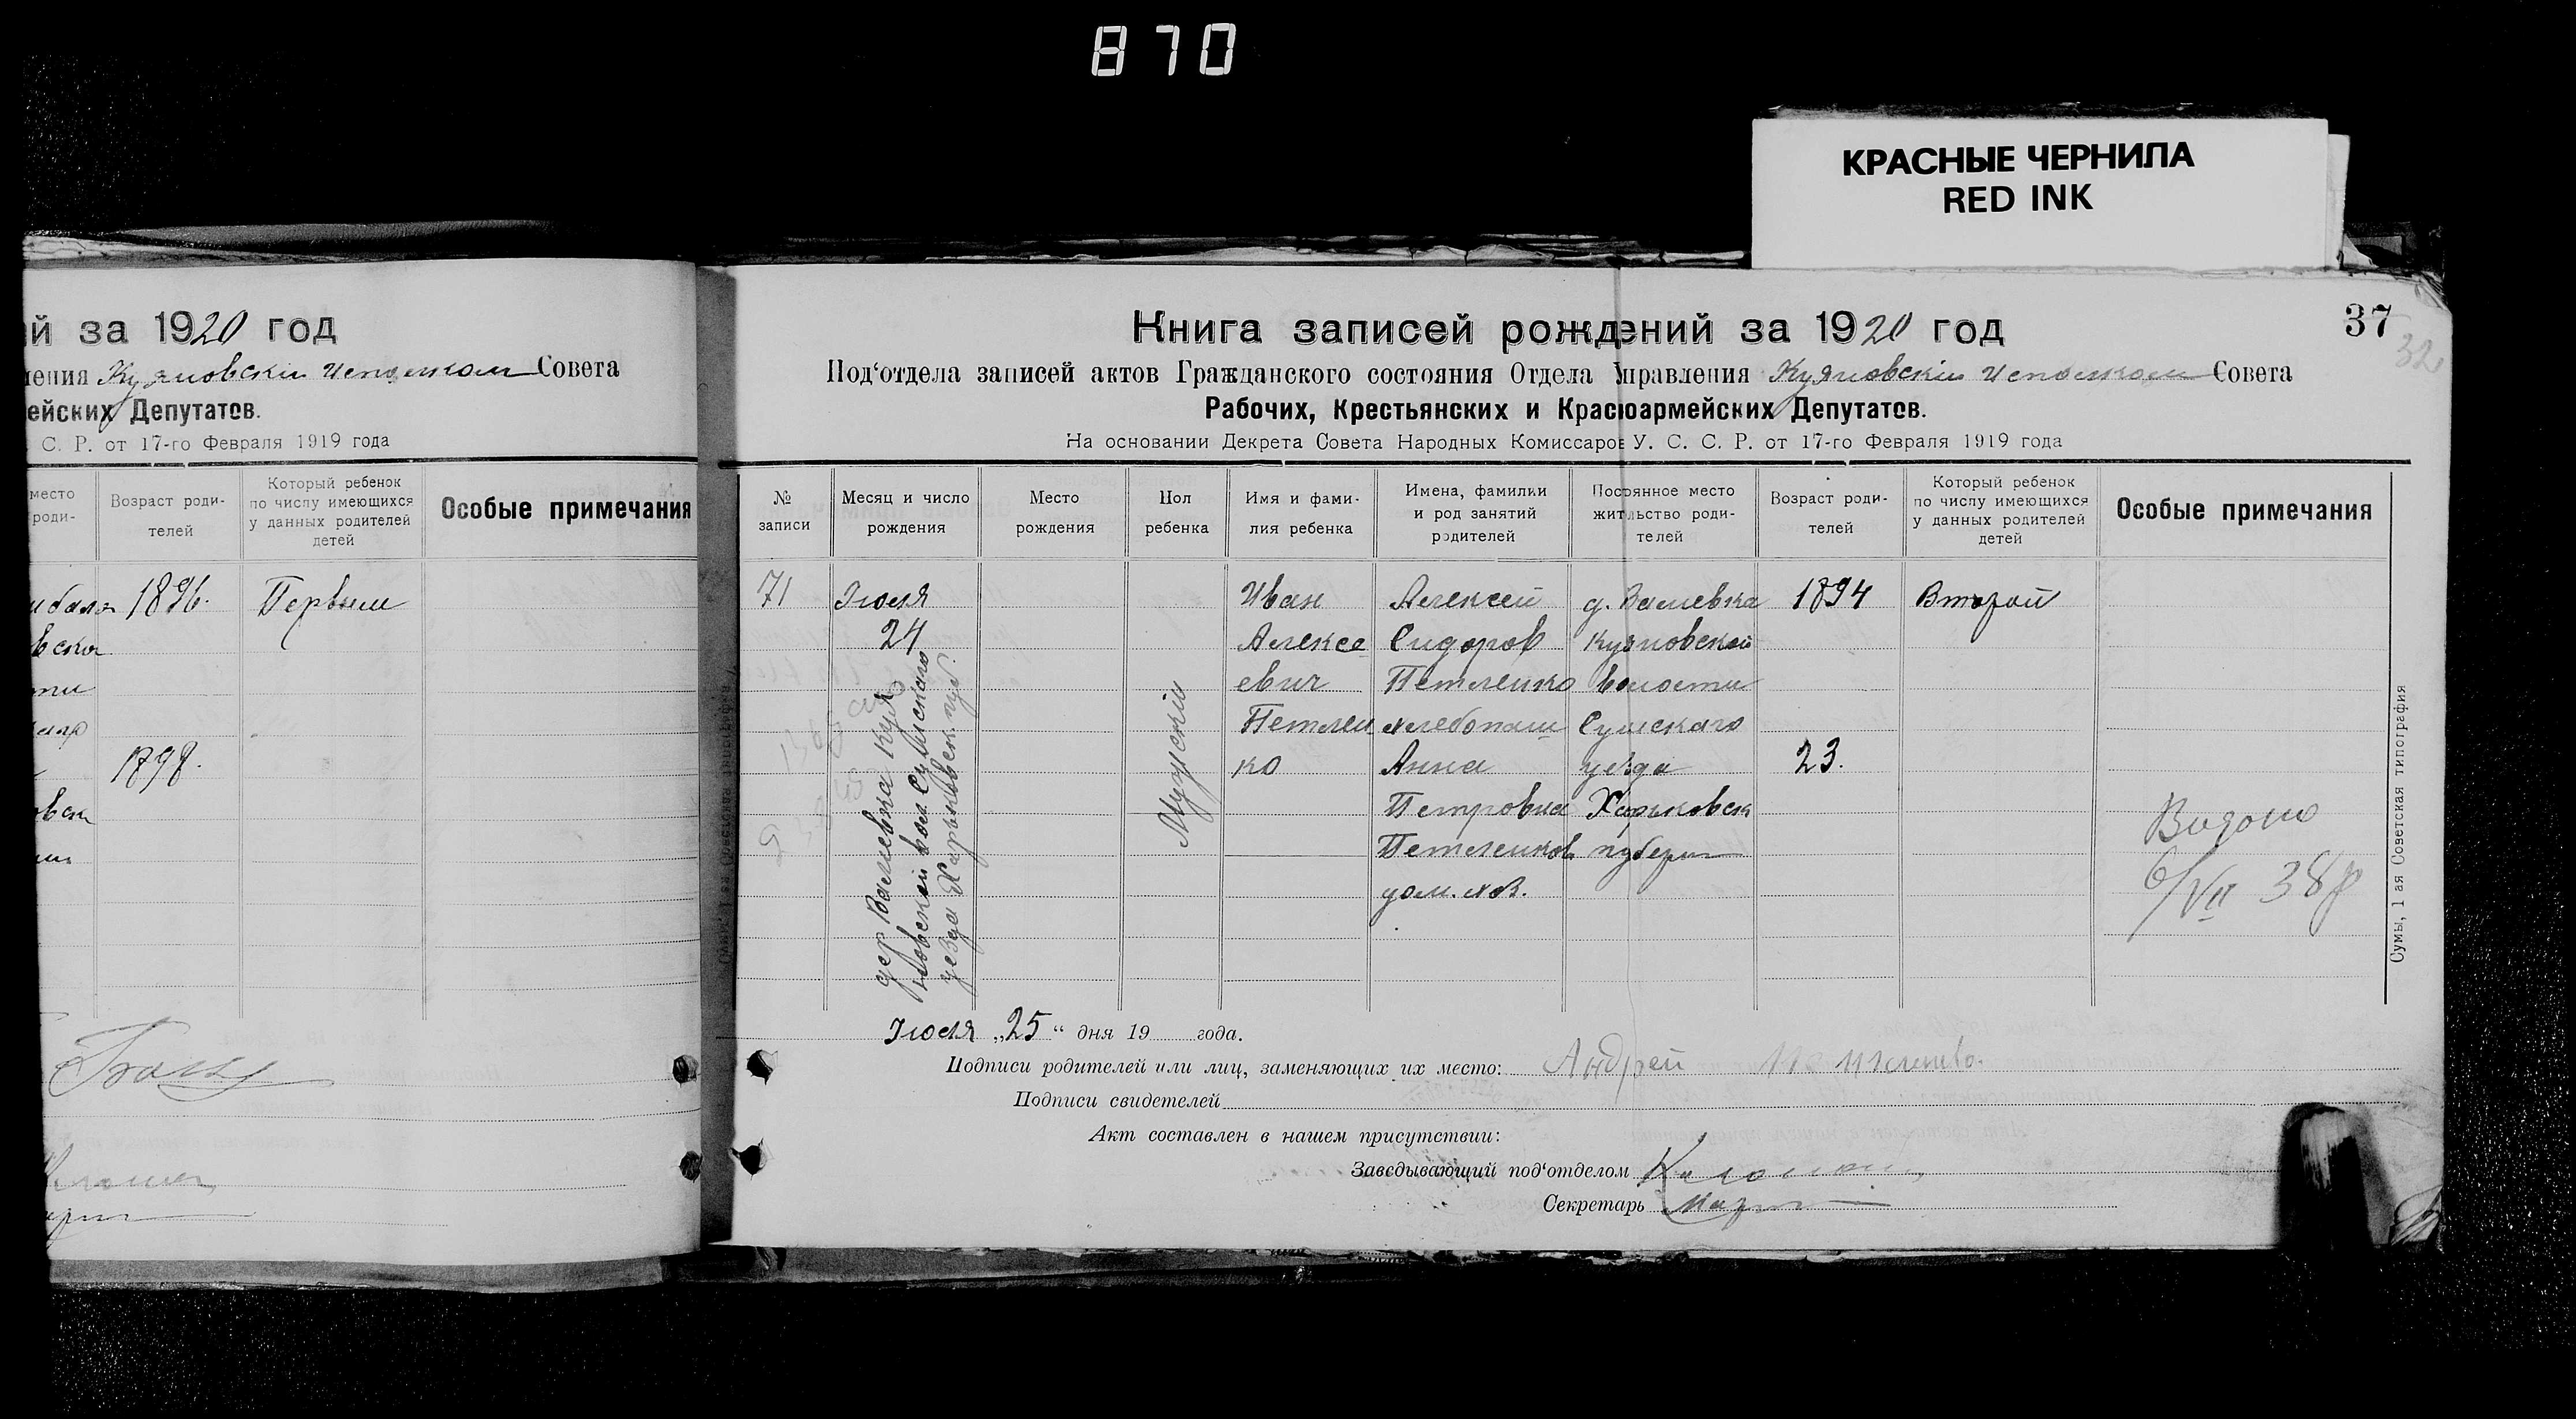 870
КРАСНЫЕ ЧЕРНИЛА
RED INK
й за 1920 год
ления Куяновский Исполком Совета
ейских Депутатов.
С. Р. от 17-го Февраля 1919 года
место роди-
Возраст роди-
телей
Который ребенок
по числу имеющихся
у данных родителей
детей
Особые примечания
1896.
Первый
1898.
37
32
Книга записей рождений за 1920 год
Под‘отдела записей актов Гражданского состояния Отдела Управления Куяновский Исполком Совета
Рабочих, Крестьянских и Красноармейских Депутатов.
На основании Декрета Совета Народных Комиссаров У. С. С. Р. от 17-го Февраля 1919 года
№
записи
Месяц и число
рождения
Место
рождения
Пол
ребенка
Имя и фами-
лия ребенка
Имена, фамилии
и род занятий
родителей
Постоянное место
жительство роди-
телей
Возраст роди-
телей
Который ребенок
по числу имеющихся
у данных родителей
детей
Особые примечания
71
Июля
24
дер. Валиевка Куя
новской вол. Сумского
уезда Харьковск. губ.
Мужский
Иван
Алексе
евич
Петлен
ко
Алексей
Сидоров
Петленко
хлебопаш
Анна
Петровна
Петленков
дом. хоз.
д. Валиевка
Куяновской
волости
Сумского
уезда
Харьковск
губерн
1894
23.
Второй
Видано
6/VII 38р
Сумы, 1 ая Советская типография
Июля „25“ дня 19 года.
Подписи родителей или лиц, заменяющих их место: Андрей
Подписи свидетелей
Акт составлен в нашем присутствии:
Заведывающий под‘отделом
Секретарь